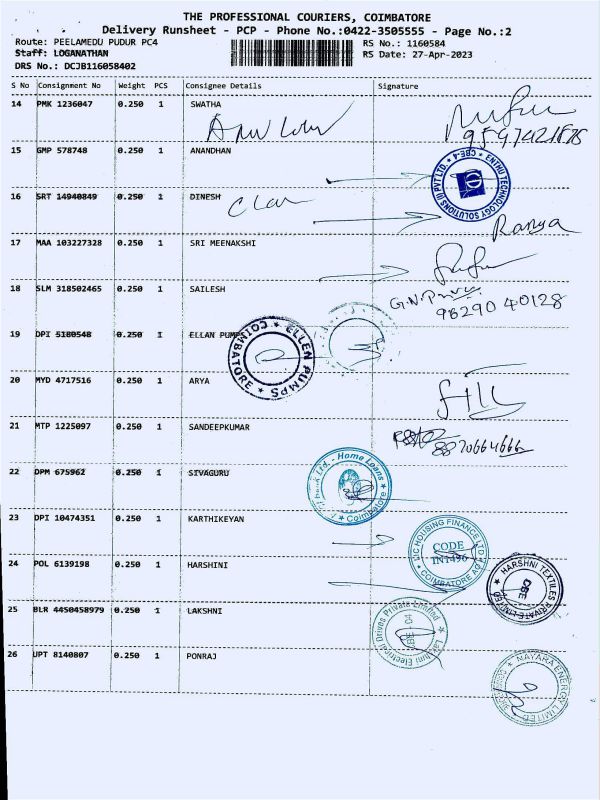 THE PROFESSIONAL COURIERS, COIMBATORE
Delivery Runsheet - PCP - Phone No.:0422-3505555 - Page No.:2
Route: PEELAMEDU PUDUR PC4
RS No.: 1160584
Staff: LOGANATHAN
RS Date: 27-Apr-2023
DRS No.: DCJB116058402
S No Consignment No Weight PCS Consignee Details Signature
14 PMK 1236047 0.250 1 SWATHA
9597421878
15 GMP 578748 0.250 1 ANANDHAN
ENTHU TECHNOLOGY SOLUTIONS (I) PVT LTD. CBE-4
16 SRT 14940849 0.250 1 DINESH
Ranya
17 MAA 103227328 0.250 1 SRI MEENAKSHI
18 SLM 318502465 0.250 1 SAILESH
G.N.
98290 40128
19 DPI 5180548 0.250 1 ELLAN PUMPS
ELLEN PUMPS COIMBATORE
20 MYD 4717516 0.250 1 ARYA
21 MTP 1225097 0.250 1 SANDEEPKUMAR
8870664666
22 DPM 675962 0.250 1 SIVAGURU
Ltd. - Home Loans Coimbatore
23 DPI 10474351 0.250 1 KARTHIKEYAN
LIC HOUSING FINANCE LTD COIMBATORE AO
CODE
IN1496
24 POL 6139198 0.250 1 HARSHINI
HARSHNI TEXTILES PRIVATE LIMITED
CBE
25 BLR 4450458979 0.250 1 LAKSHNI
Lakshmi Electrical Drives Private Limited
CBE 04
26 UPT 8140807 0.250 1 PONRAJ
NAYARA ENERGY LIMITED